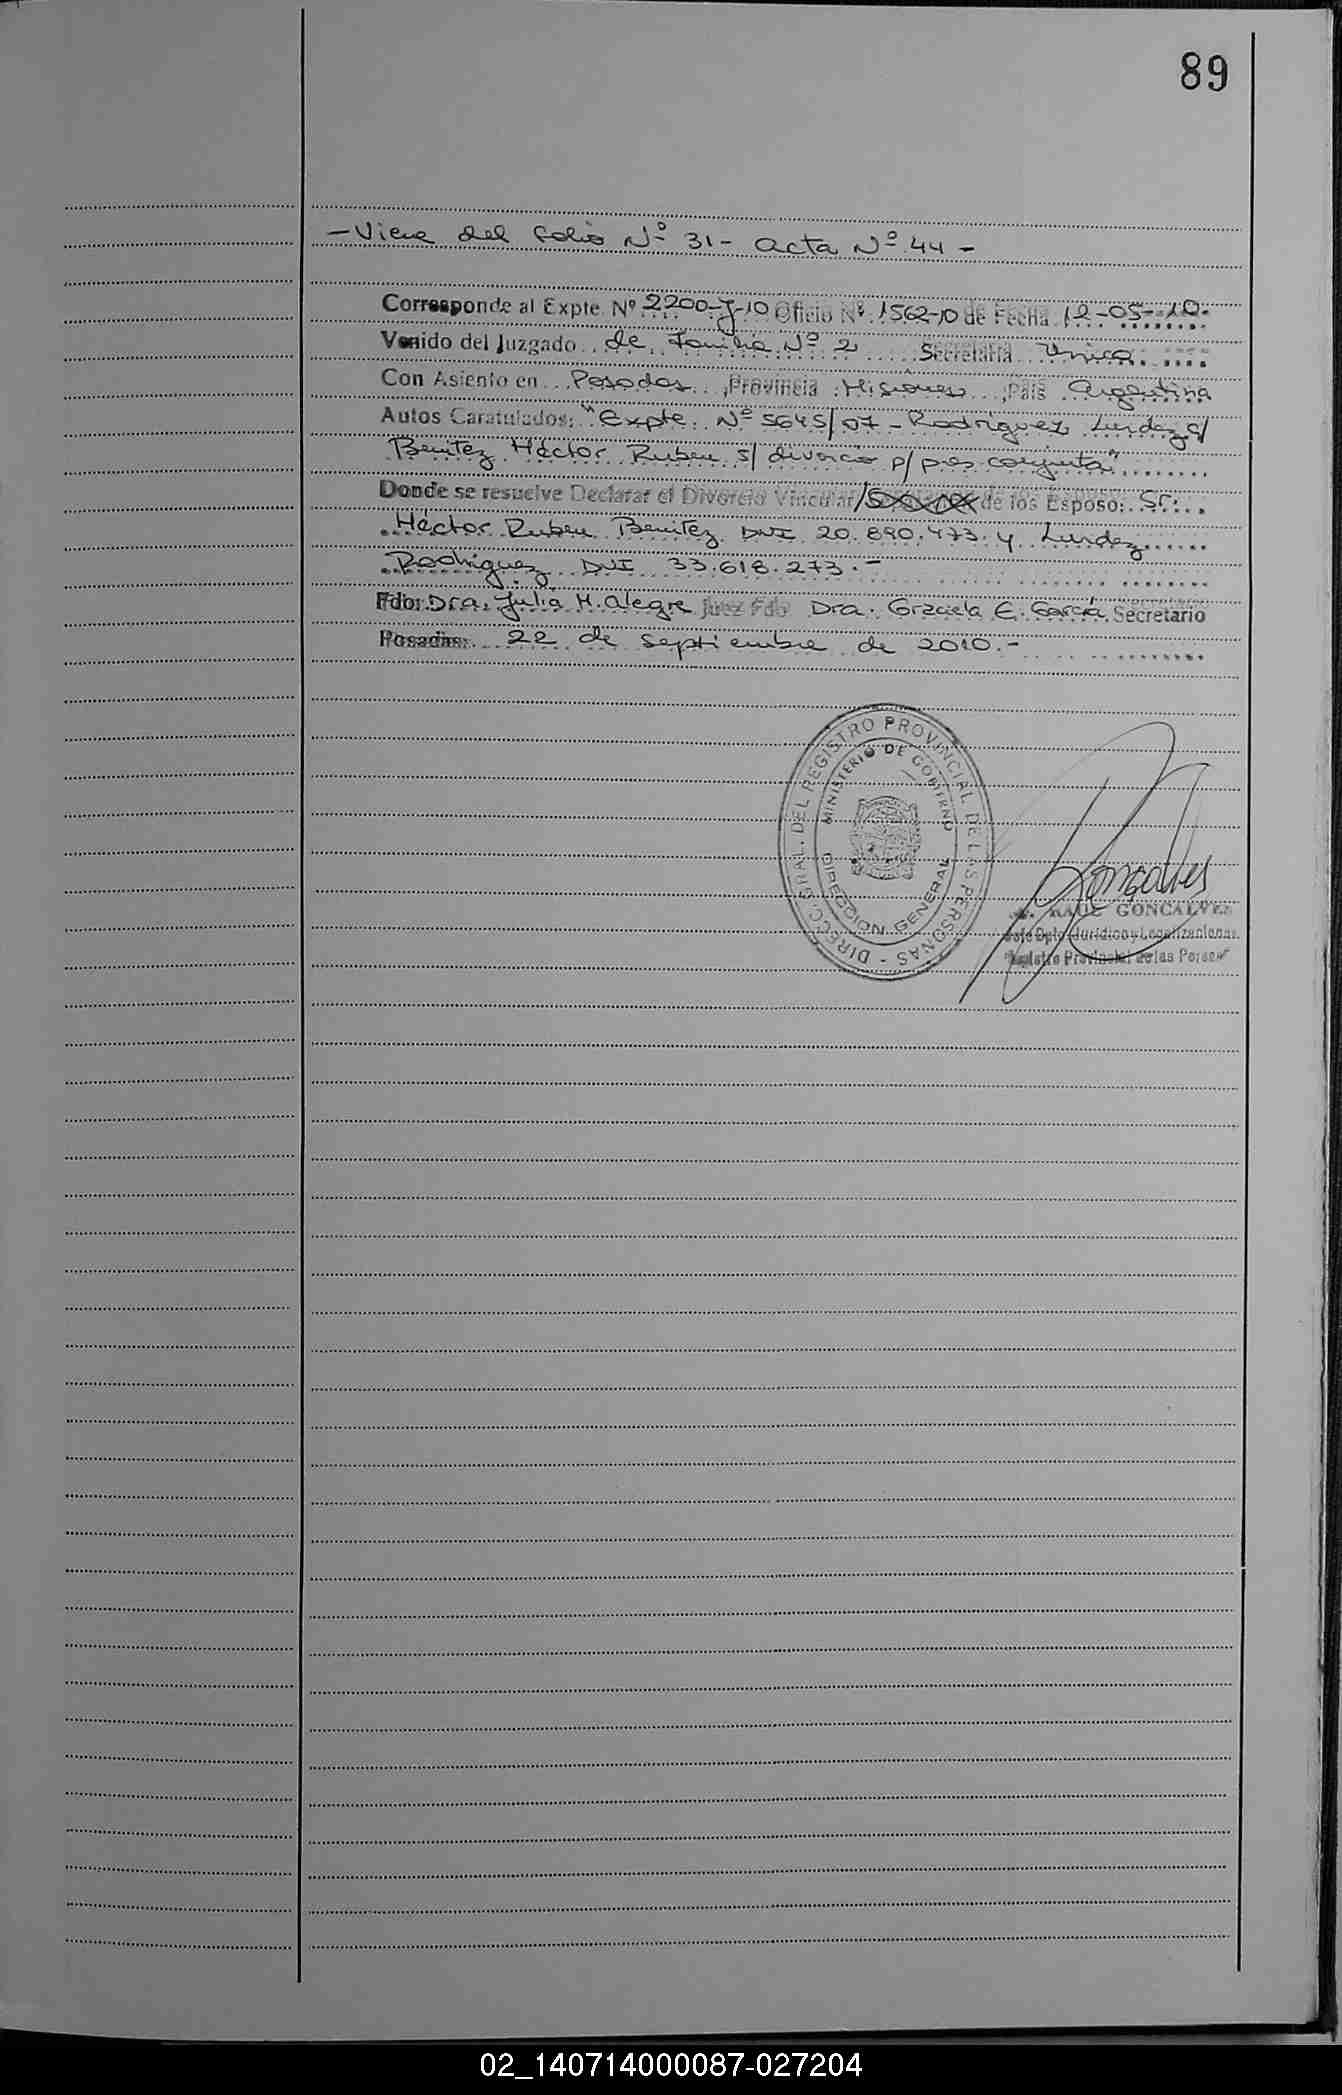 89
- Viene del folio Nº 31 - acta Nº 44 -
Corresponde al Expte. Nº 2200-J-10 Oficio Nº 1562-10 de Fecha 12-05-10.
Venido del Juzgado de Familia Nº 2 Secretaría Unica
Con Asiento en Posadas, Provincia Misiones, País Argentina
Autos Caratulados: "Expte. Nº 5645/07 - Rodriguez Lurdez c/
Benitez Héctor Ruben s/ divorcio p/ pres. conjunta"
Donde se resuelve Declarar el Divorcio Vincular/ de los Esposo: Sr:
Héctor Ruben Benitez DNI 20.890.473 y Lurdez
Rodriguez DNI 33.618.273.-
Fdo: Dra. Julia H. Alegre Juez Fdo Dra. Graciela E. García Secretario
Posadas: 22 de septiembre de 2010.-
DIRECC. GRAL. DEL REGISTRO PROVINCIAL DE LAS PERSONAS -
MINISTERIO DE GOBIERNO
DIRECCION GENERAL
Gonçalves
RAUL GONCALVES
Jefe Dpto. Jurídico y Legalizaciones
Registro Provincial de las Person
02_140714000087-027204